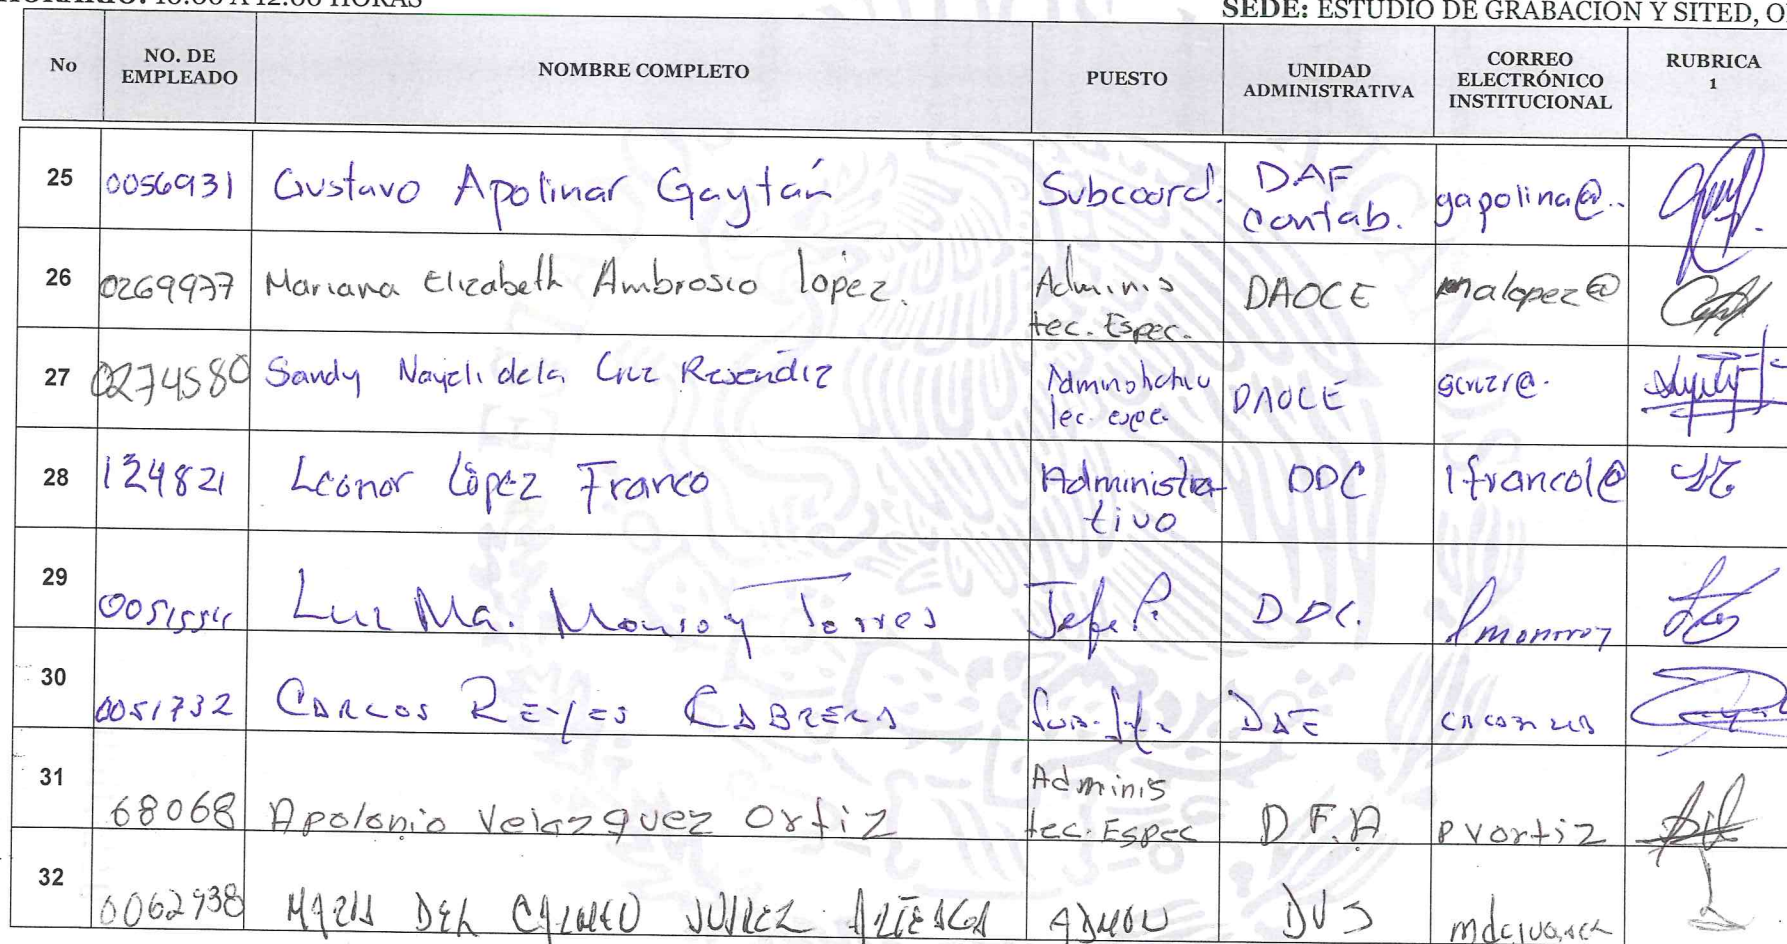 HORARIO: 10:00 A 12:00 HORAS SEDE: ESTUDIO DE GRABACION Y SITED,
No NO. DE EMPLEADO NOMBRE COMPLETO PUESTO UNIDAD ADMINISTRATIVA CORREO ELECTRÓNICO INSTITUCIONAL RUBRICA 1
25 0056931 Gustavo Apolinar Gaytán Subcoord. DAF contab. gapolina@..
26 0269977 Mariana Elizabeth Ambrosio lopez. Adminis tec. Espec. DAOCE malopez@
27 0274580 Sandy Nayeli dela Cruz Resendiz DAOCE scruzr@.
28 124821 Leonor López Franco Administrativo DDC lfrancol@
29 Luz Ma. Monroy Torres Jefe P. DDC. lmonrroy
30 0051732 CARLOS REYES CABRERA DAE
31 68068 Apolonio Velazquez Ortiz Adminis tec. Espec D F.A pvortiz
32 0062938 MARIA DEL CARMEN JUAREZ ADMON DVS